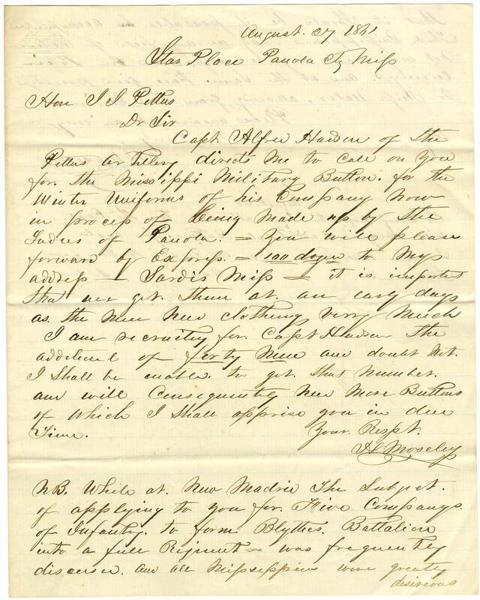 August 27 1861
Star Place Panola Cty Miss
Hon J. J. Pettus
Dr Sir
Capt Alfred Hudson of the
Pettus Artillery directs me to call on you
for the Mississippi Military Buttons. for the
Winter Uniforms of his Company now
in process of being made up by the
Ladies of Panola. = You will please
forward by Express. = 100 dozen to my
address = Sardis Miss = it is important
that we get them at an early day
as the men need clothing very much
I am recruiting for Capt Hudson the
additional of forty men and doubt not.
I shall be enable to get that number.
and will consequently need more Buttons
of which I shall apprise you in due
Time. Your Respt.
Moseley
NB. While at New Madrid The Subject.
of applying to you for Five Companys
of Infantry. to form Blythes Battalion
into a full Regiment = was frequently
discussed. and all Mississippians were greatly
desireous